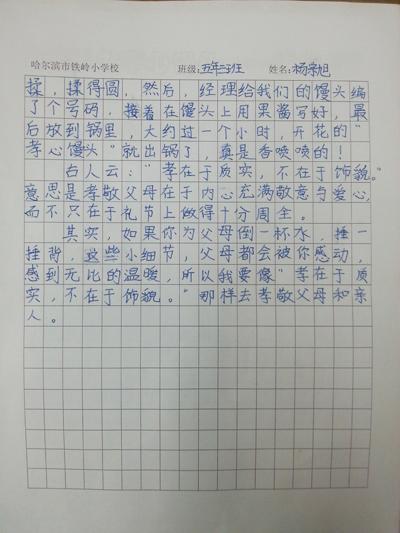 哈尔滨市铁岭小学校 班级：五年二班 姓名：杨宗旭
揉，揉得圆，然后，经理给我们的馒头编
了个号码，接着在馒头上用果酱写好，最
后放到锅里，大约过一个小时，开花的“
孝心馒头”就出锅了，真是香喷喷的！
古人云：“孝在于质实，不在于饰貌。”
意思是孝敬父母在于内心充满敬意与爱心，
而不只在于礼节上做得十分周全。
其实，如果你为父母倒一杯水、捶一
捶背，这些小细节，父母都会被你感动，
感到无比的温暖，所以我要像“孝在于质
实，不在于饰貌。”那样去孝敬父母和亲
人。